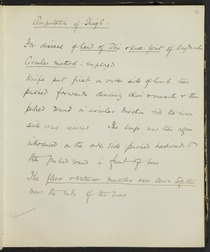 Amputation of Thigh.
For disease of head of Tibia & knee joint of
Circular method. employed
Knife put first on outer side of limb, then
pushed forwards dividing skin & muscle & then
pulled round in circular manner till the inner
side was reached. The knife was then again
introduced on the outer side pushed backwards &
then pulled round in front of bone
The flexor & extensor muscles were sewn together
over the ends of the bone